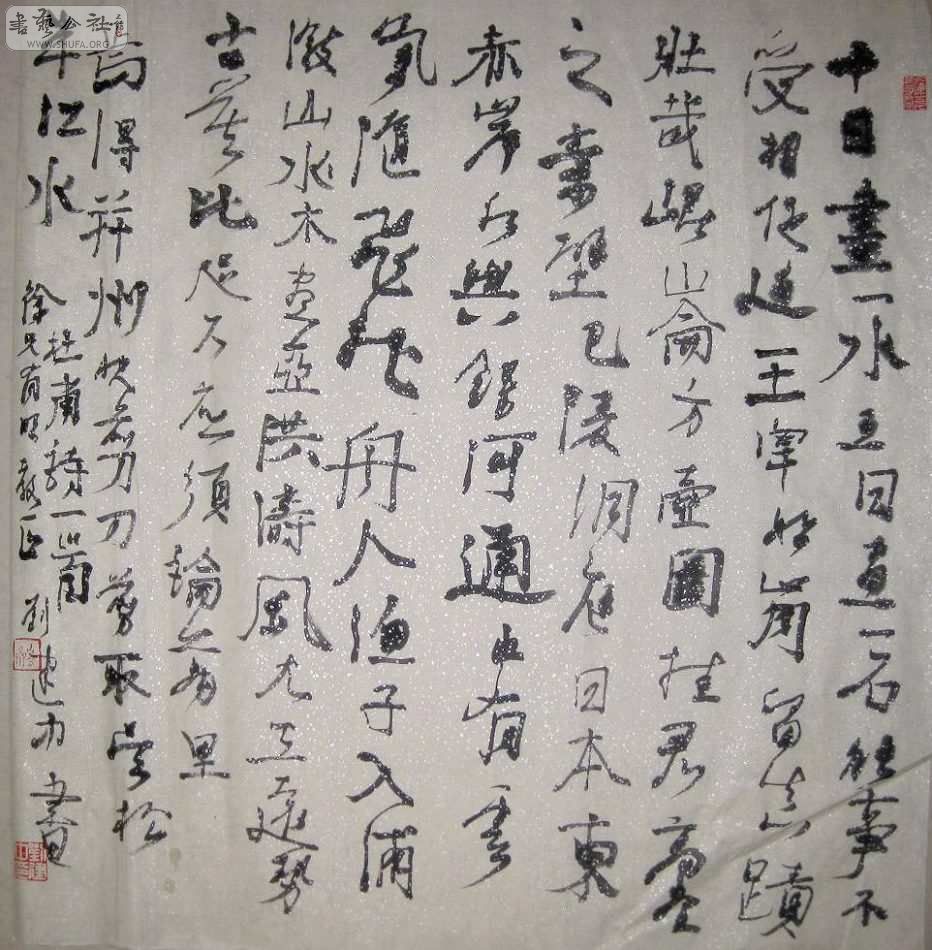 書藝公社
WWW.SHUFA.ORG
十日畫一水五日畫一石能事不
受相促迫王宰始肯留真蹟
壯哉崐崙方壺圖挂君高堂
之素壁巴陵洞庭日本東
赤岸水與銀河通中有雲
氣隨飛龍舟人漁子入浦
漵山水木盡亞洪濤風尤工遠勢
古莫比咫尺應須論万里
焉得并州快剪刀剪取吳松
半江水
杜甫詩一首
徐兄有暇教正 劉建 書